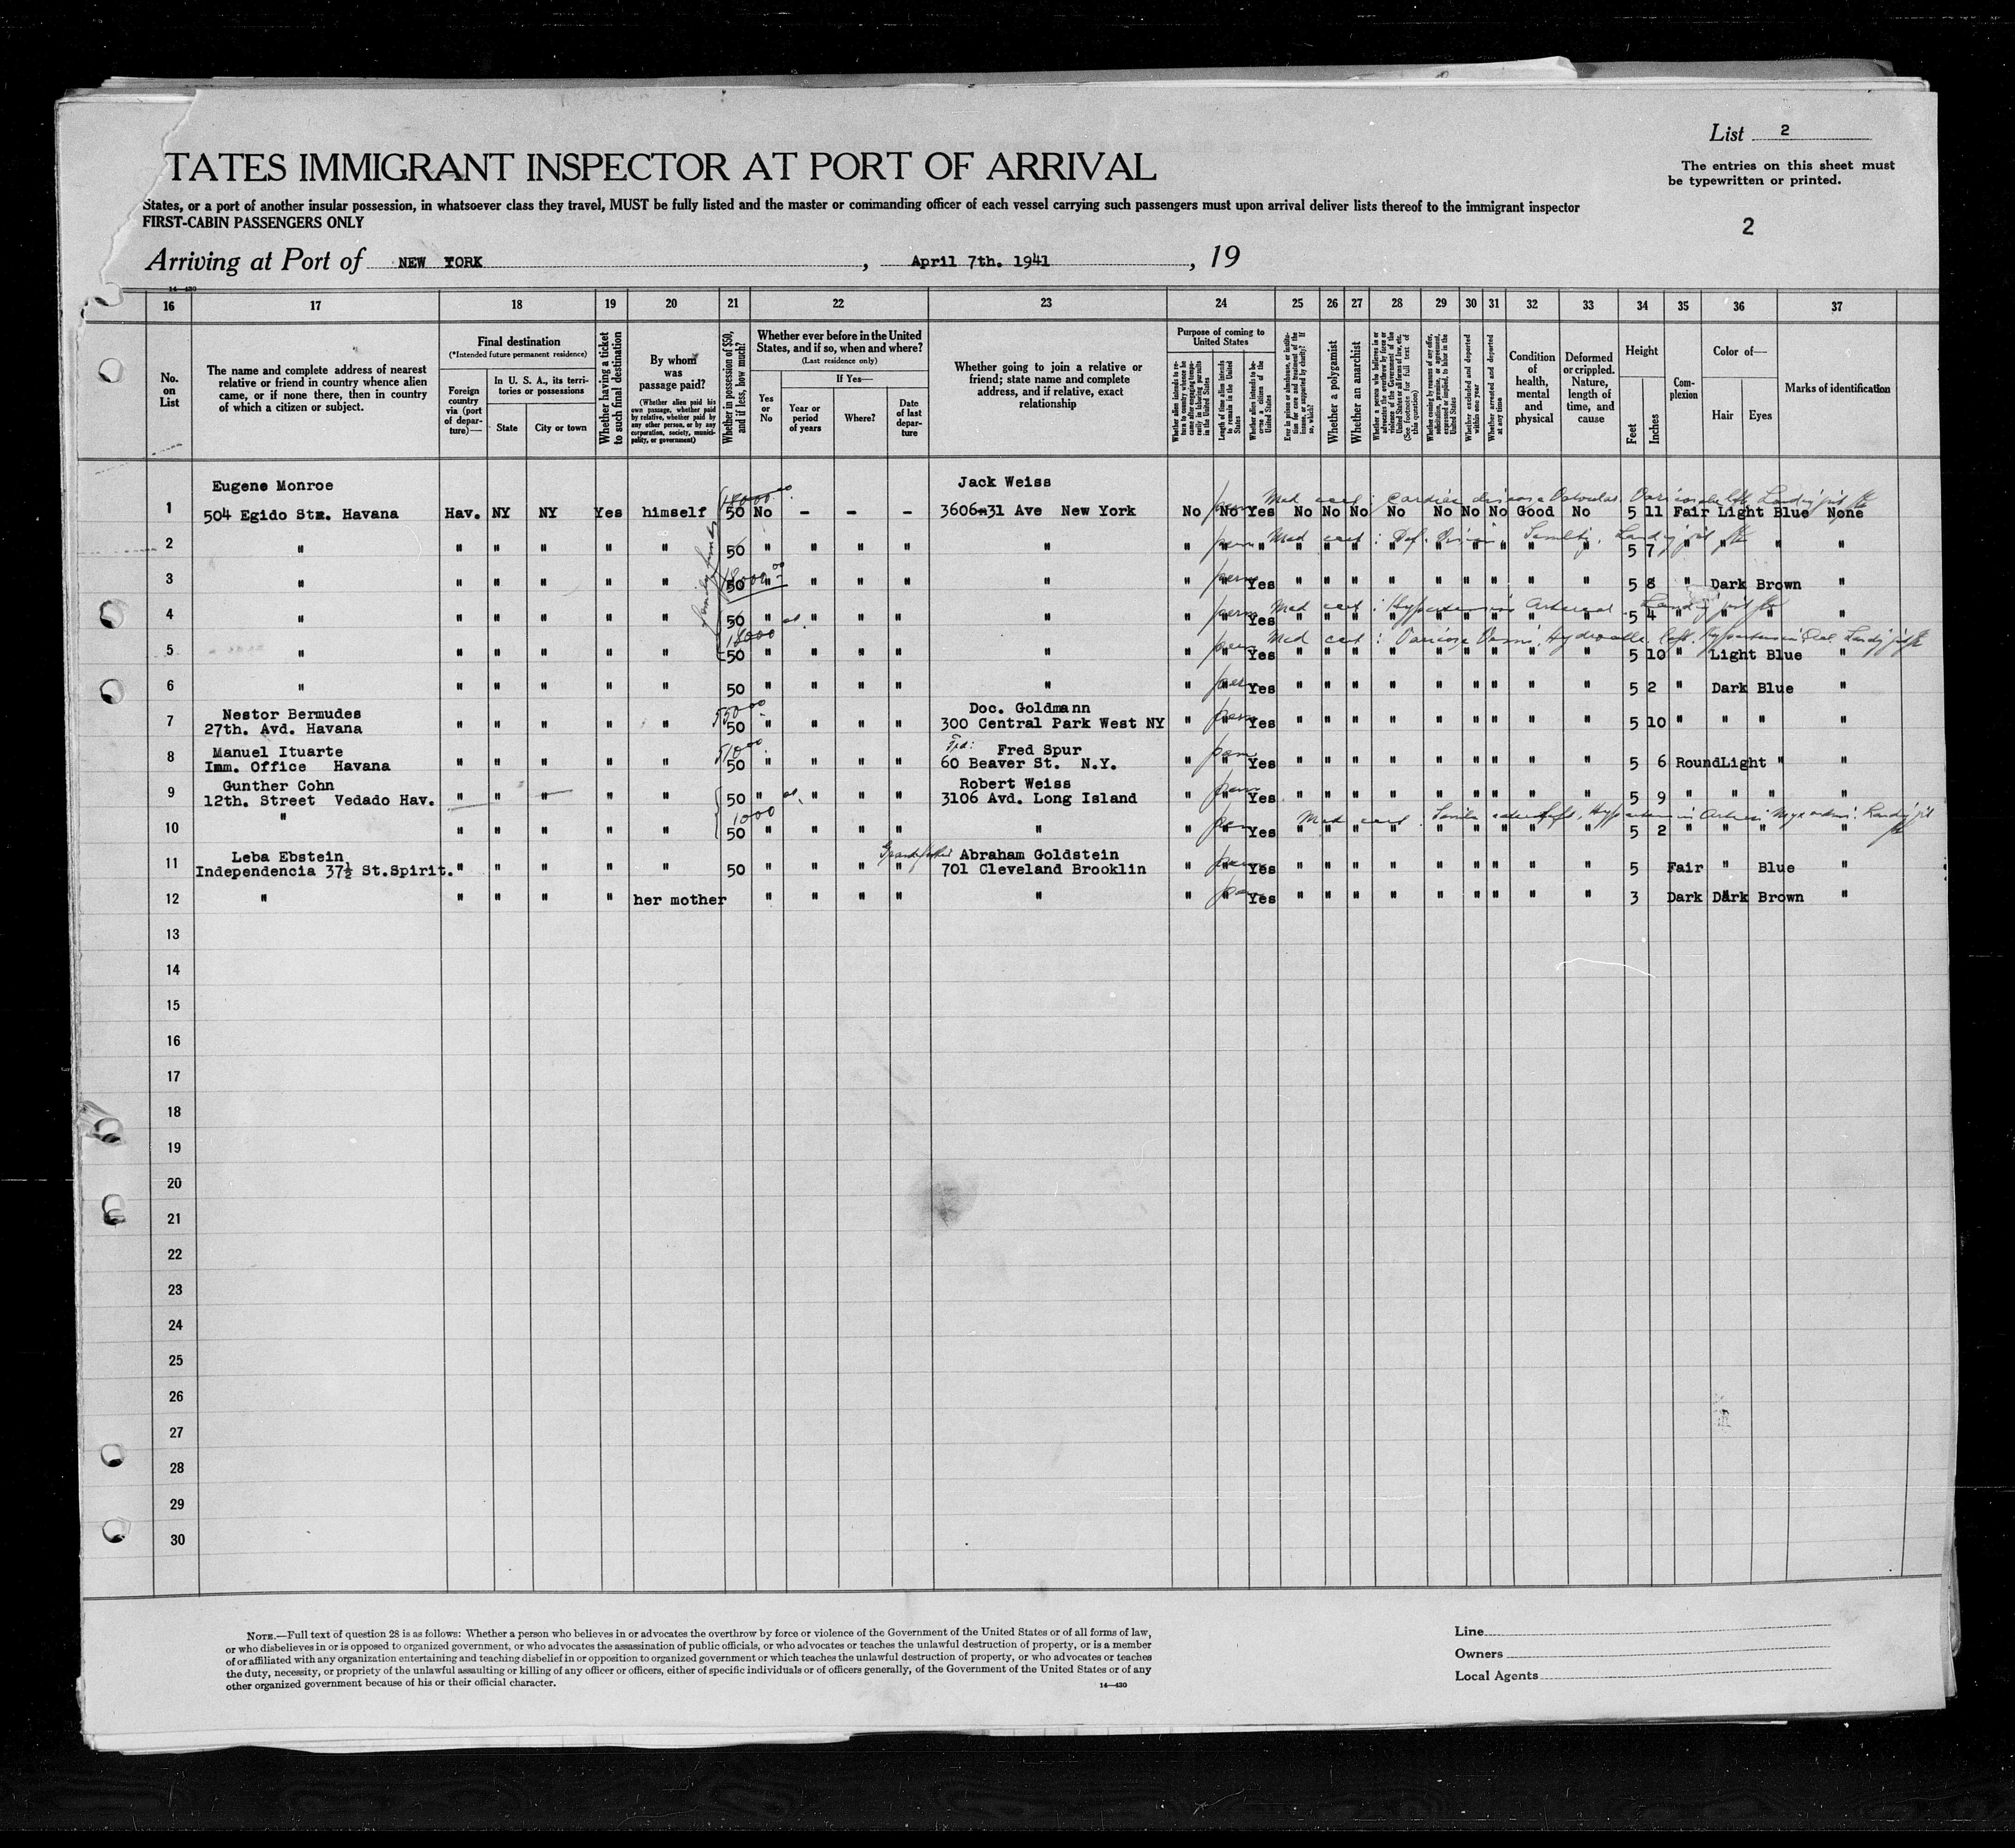 List 2
TATES IMMIGRANT INSPECTOR AT PORT OF ARRIVAL
The entries on this sheet must
be typewritten or printed.
States, or a port of another insular possession, in whatsoever class they travel, MUST be fully listed and the master or commanding officer of each vessel carrying such passengers must upon arrival deliver lists thereof to the immigrant inspector
FIRST-CABIN PASSENGERS ONLY
2
Arriving at Port of NEW YORK, April 7th. 1941, 19
14—430
16 17 18 19 20 21 22 23 24 25 26 27 28 29 30 31 32 33 34 35 36 37
No. on List
The name and complete address of nearest relative or friend in country whence alien came, or if none there, then in country of which a citizen or subject.
Final destination
(*Intended future permanent residence)
Foreign country via (port of departure)—
In U. S. A., its territories or possessions
State
City or town
Whether having a ticket to such final destination
By whom was passage paid?
(Whether alien paid his own passage, whether paid by relative, whether paid by any other person, or by any corporation, society, municipality, or government)
Whether in possession of $50, and if less, how much?
Whether ever before in the United States, and if so, when and where?
(Last residence only)
Yes or No
If Yes—
Year or period of years
Where?
Date of last departure
Whether going to join a relative or friend; state name and complete address, and if relative, exact relationship
Purpose of coming to United States
Whether alien intends to return to country whence he came after engaging temporarily in laboring pursuits in the United States
Length of time alien intends to remain in the United States
Whether alien intends to become a citizen of the United States
Ever in prison or almshouse, or institution for care and treatment of the insane, or supported by charity? If so, which?
Whether a polygamist
Whether an anarchist
Whether a person who believes in or advocates the overthrow by force or violence of the Government of the United States or all forms of law, etc. (See footnote for full text of this question)
Whether coming by reason of any offer, solicitation, promise, or agreement, expressed or implied, to labor in the United States
Whether excluded and deported within one year
Whether arrested and deported at any time
Condition of health, mental and physical
Deformed or crippled. Nature, length of time, and cause
Height
Feet
Inches
Complexion
Color of—
Hair
Eyes
Marks of identification
Eugene Monroe Jack Weiss
1 504 Egido St. Havana Hav. NY NY Yes himself 50 No - - - 3606-31 Ave New York No No Yes No No No No No No No Good No 5 11 Fair Light Blue None
2 " " " " " " 50 " " " " " " " " " " " " " " " " " 5 7 " " " "
3 " " " " " " 50 " " " " " " " Yes " " " " " " " " " 5 8 " Dark Brown "
4 " " " " " " 50 " " " " " " " Yes " " " " " " " " " 5 4 " " " "
5 " " " " " " 50 " " " " " " " Yes " " " " " " " " " 5 10 " Light Blue "
6 " " " " " " 50 " " " " " " " Yes " " " " " " " " " 5 2 " Dark Blue "
Nestor Bermudes Doc. Goldmann
7 27th. Avd. Havana " " " " " 50 " " " " 300 Central Park West NY " " Yes " " " " " " " " " 5 10 " " " "
Manuel Ituarte Fred Spur
8 Imm. Office Havana " " " " " 50 " " " " 60 Beaver St. N.Y. " " Yes " " " " " " " " " 5 6 Round Light " "
Gunther Cohn Robert Weiss
9 12th. Street Vedado Hav. " " " " " 50 " " " " 3106 Avd. Long Island " " Yes " " " " " " " " " 5 9 " " " "
10 " " " " " " 50 " " " " " " " Yes " " " " " " " " " 5 2 " " " "
Leba Ebstein Abraham Goldstein
11 Independencia 37½ St.Spirit. " " " " " 50 " " " " 701 Cleveland Brooklin " " Yes " " " " " " " " " 5 Fair " Blue "
12 " " " " " her mother " " " " " " " Yes " " " " " " " " " 3 Dark Dark Brown "
13
14
15
16
17
18
19
20
21
22
23
24
25
26
27
28
29
30
NOTE.—Full text of question 28 is as follows: Whether a person who believes in or advocates the overthrow by force or violence of the Government of the United States or of all forms of law,
or who disbelieves in or is opposed to organized government, or who advocates the assassination of public officials, or who advocates or teaches the unlawful destruction of property, or is a member
of or affiliated with any organization entertaining and teaching disbelief in or opposition to organized government or which teaches the unlawful destruction of property, or who advocates or teaches
the duty, necessity, or propriety of the unlawful assaulting or killing of any officer or officers, either of specific individuals or of officers generally, of the Government of the United States or of any
other organized government because of his or their official character.
14—430
Line
Owners
Local Agents